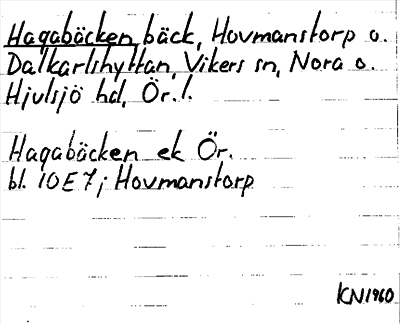 Hagabäcken bäck, Hovmanstorp o.
Dalkarlshyttan, Vikers sn, Nora o.
Hjulsjö hd, Ör. l.
Hagabäcken ek Ör.
bl. 10E7; Hovmanstorp
KN1960